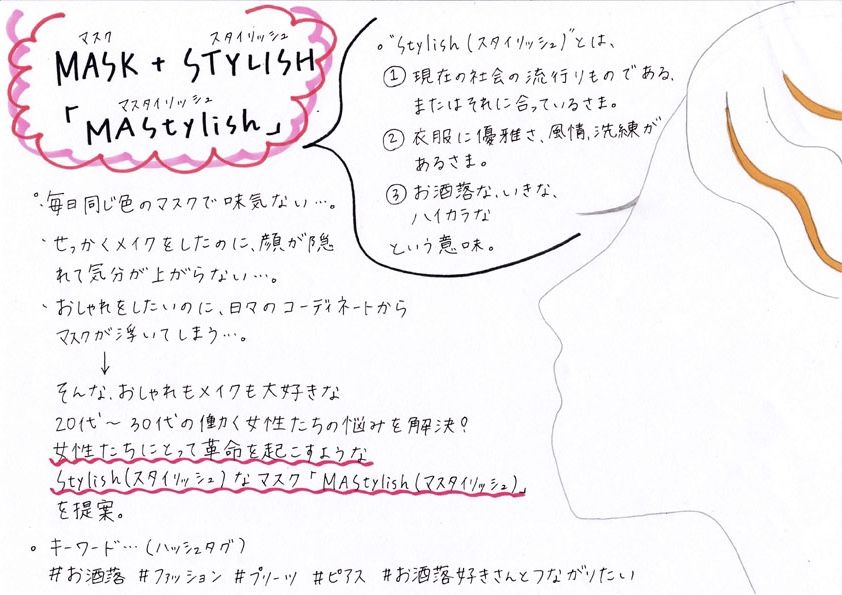 マスク スタイリッシュ
MASK + STYLISH
マスタイリッシュ
「MAStylish」
。"Stylish (スタイリッシュ)"とは、
① 現在の社会の流行りものである、
またはそれに合っているさま。
② 衣服に優雅さ、風情、洗練が
あるさま。
③ お洒落な、いきな、
ハイカラな
という意味。
・毎日同じ色のマスクで味気ない…。
・せっかくメイクをしたのに、顔が隠
れて気分が上がらない…。
・おしゃれをしたいのに、日々のコーディネートから
マスクが浮いてしまう…。
↓
そんな、おしゃれもメイクも大好きな
20代～30代の働く女性たちの悩みを解決?
女性たちにとって革命を起こすような
Stylish(スタイリッシュ)なマスク「MAStylish(マスタイリッシュ)」
を提案。
。キーワード…(ハッシュタグ)
#お洒落 #ファッション #プリーツ #ピアス #お洒落好きさんとつながりたい